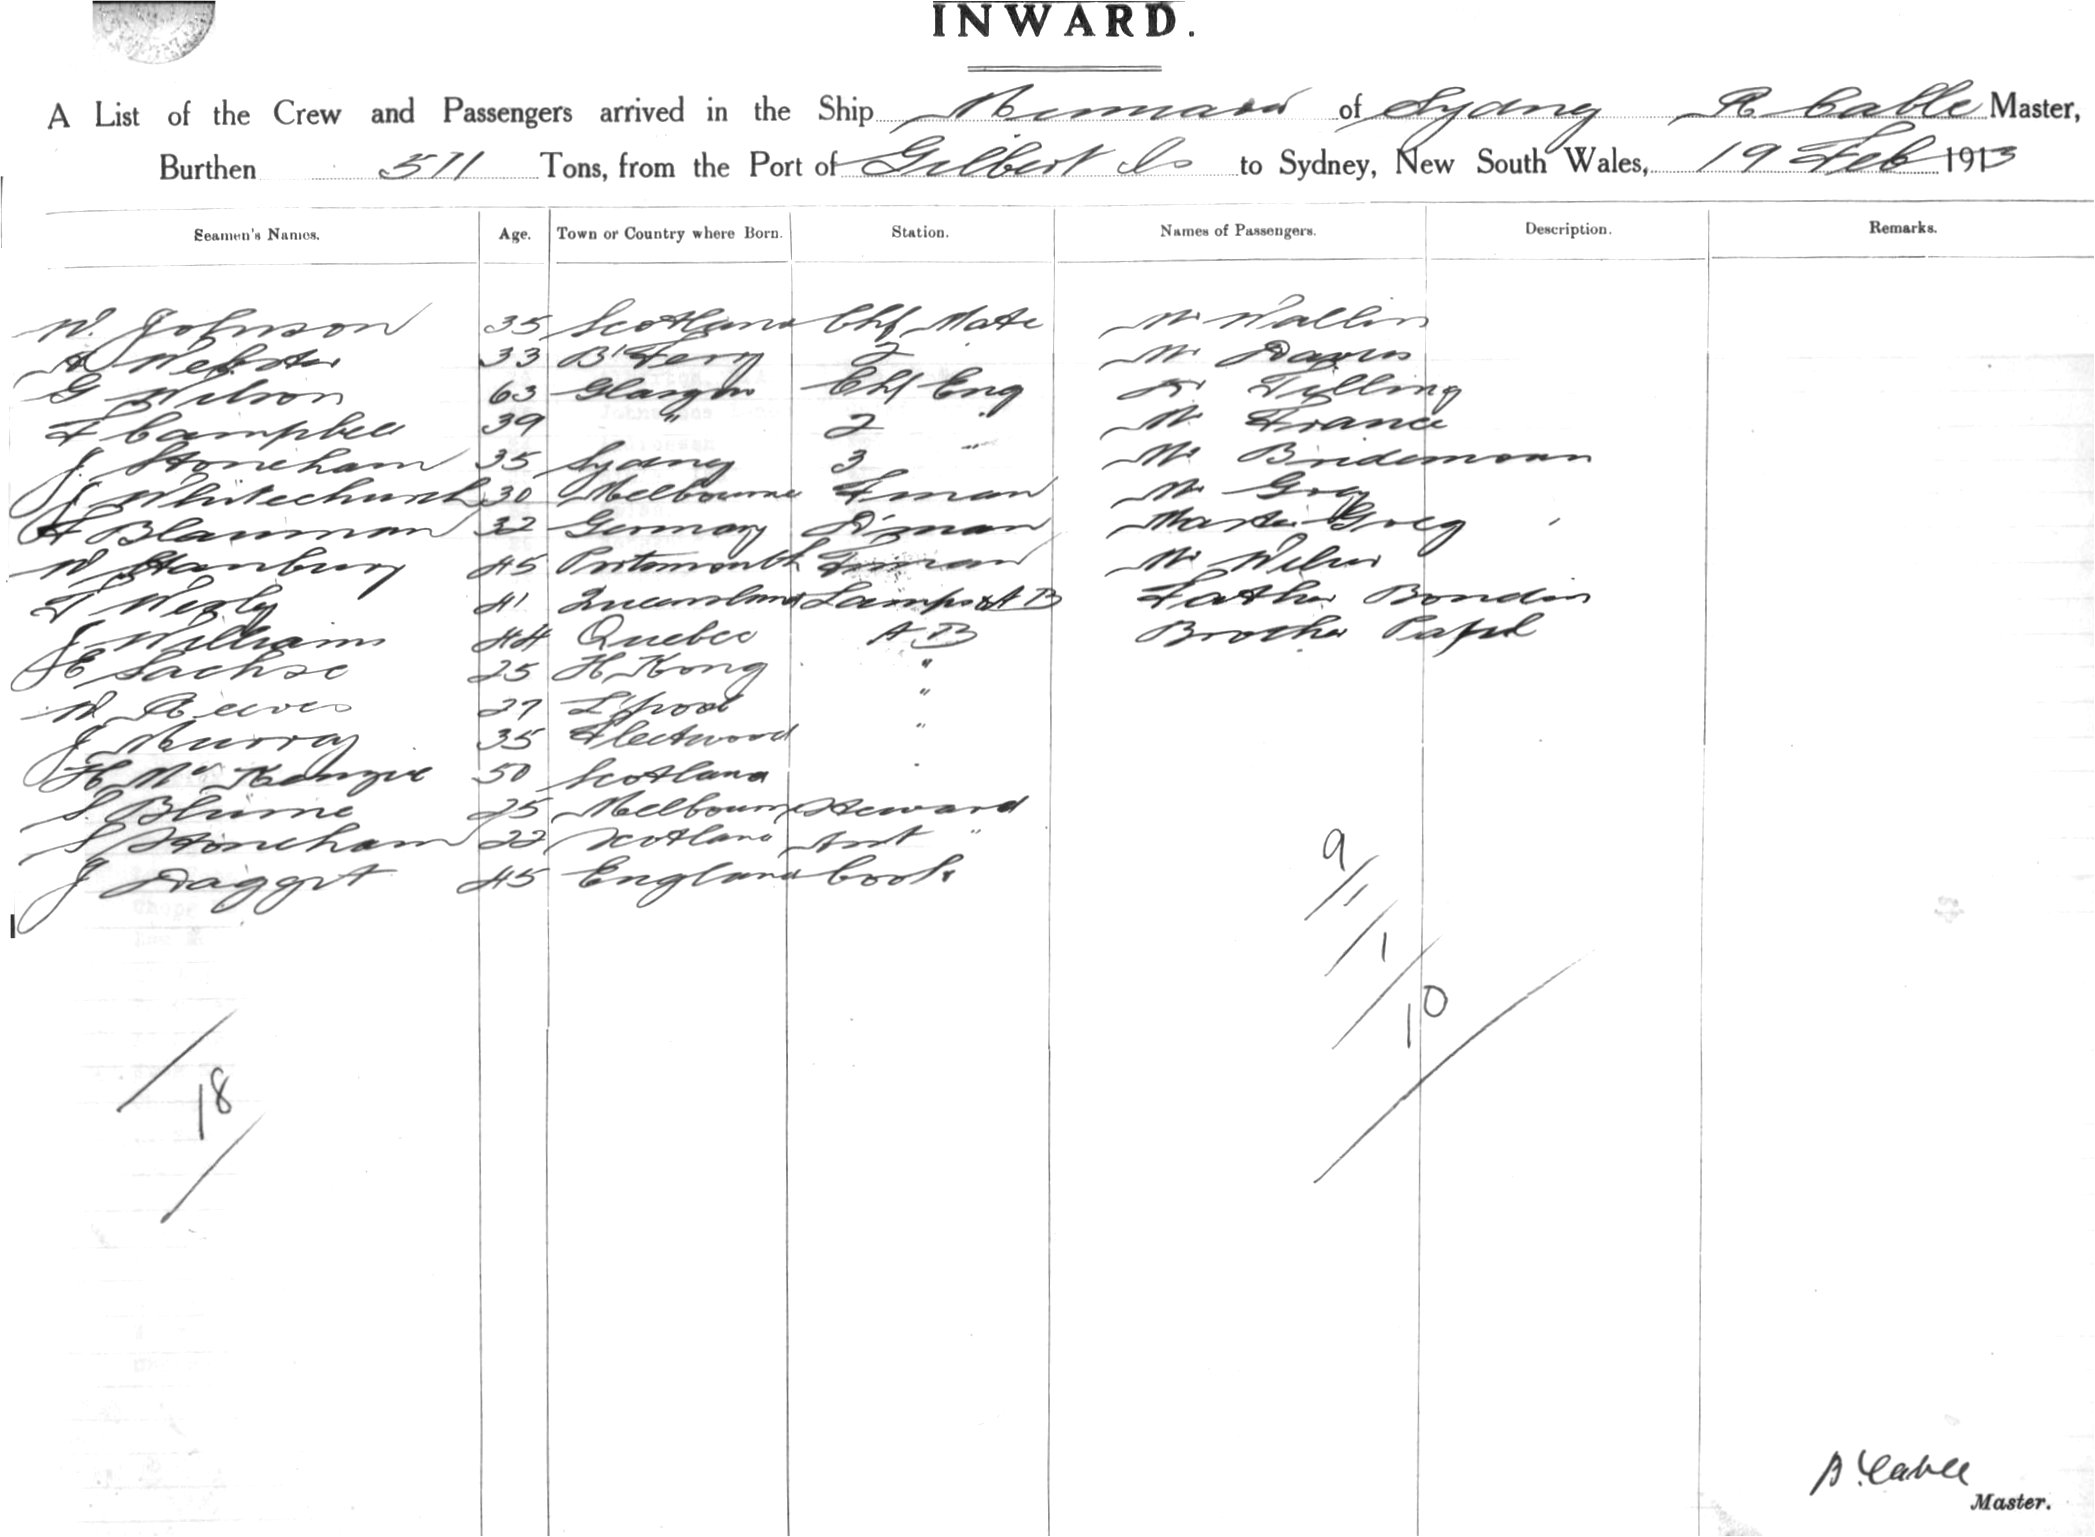 INWARD.
A List of the Crew and Passengers arrived in the Ship of Sydney R Cable Master,
Burthen 571 Tons, from the Port of Gilbert Is to Sydney, New South Wales, 19 Feb 1913
Seamen's Names. Age. Town or Country where Born. Station. Names of Passengers. Description. Remarks.
W. Johnson 35 Scotland Chf Mate Mr Wallin
A Webster 33 B' Fery 2 " Mr Davies
G Wilson 63 Glasgow Chf Eng Tilling
F Campbell 39 " 2 " Mr France
J. Stoneham 35 Sydney 3 " Mr
J Whitechurch 30 Melbourne Fman Mr
32 Germany Master
W Hanbury 45 Portsmouth Fman Mr
T 41 Queensland Lamps & AB Father
J Williams 44 Quebec A.B Brother
E Sachse 25 H. Kong "
W. Reeves 27 L'pool "
J Murray 35 Fleetwood "
H McKenzie 50 Scotland "
S. Blume 25 Melbourne Steward
S Stoneham 22 Scotland Asst "
J Daggot 45 England Cook
9/1
/1
/10
/18
Cable
Master.